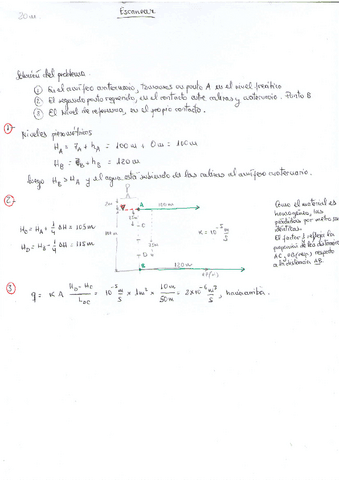 Escanear
Solución del problema.
① En el acuífero cuaternario, tomamos un punto A en el nivel freático
② El segundo punto segundo, en el contacto entre calizas y cuaternario. Punto B
③ El nivel de referencia, en el propio contacto.
1) Niveles piezométricos
H_A = z_A + h_A = 100 m + 0 m = 100 m
H_B = z_B + h_B = 120 m
luego H_B > H_A y el agua está subiendo de las calizas al acuífero cuaternario.
2)
H_C = H_A + 1/4 ΔH = 105 m
H_D = H_B - 1/4 ΔH = 115 m
A
100 m
C
D
K = 10^-5 m/s
B
120 m
Como el material es
homogéneo, las
pérdidas por metro son
idénticas.
El factor 1/4 refleja la
AC, BD (resp.) respecto
a la distancia AB.
3) q = K A (H_D - H_C)/L_DC = 10^-5 m/s × 1 m² × 10 m/50 m = 2×10^-6 m³/s, hacia arriba.